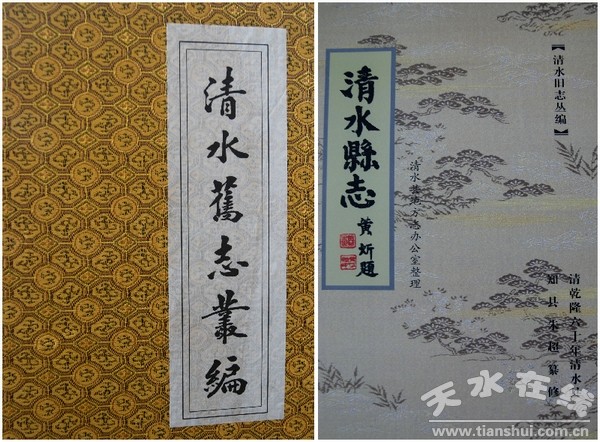 清水舊志叢編
【清水旧志丛编】
清水縣志
黄炘題
清水县地方志办公室整理
清乾隆六十年清水
知县朱超纂修
天水在线
www.tianshui.com.cn